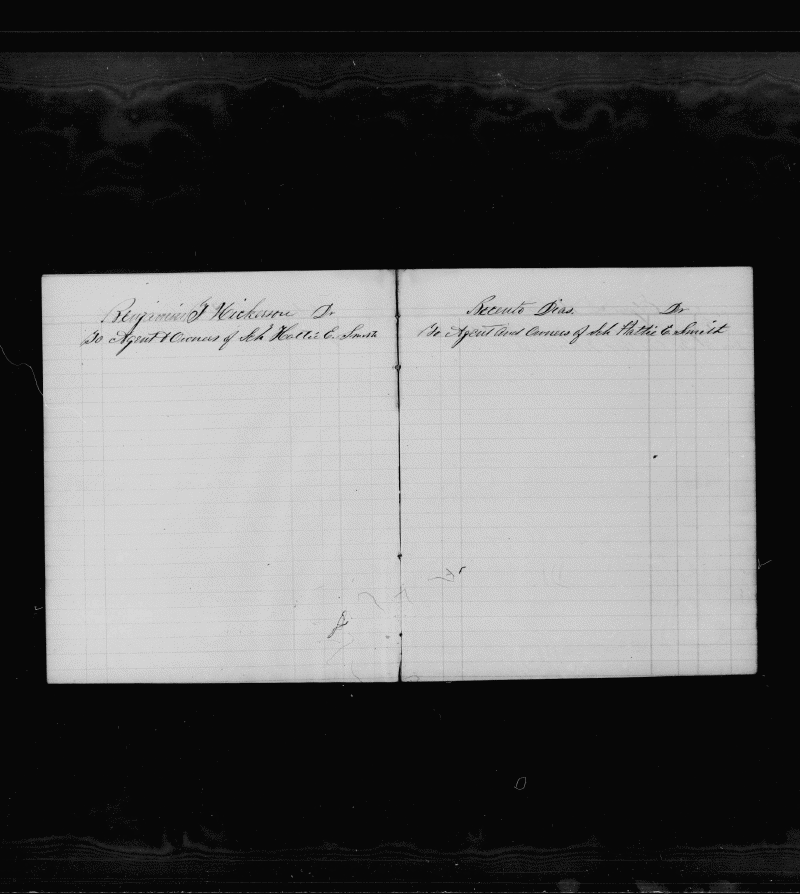 Benjamin F Nickerson Dr
To Agent & Owners of Sch Hattie E. Smith
Dias. Dr
To Agent and Owners of Sch Hattie E. Smith